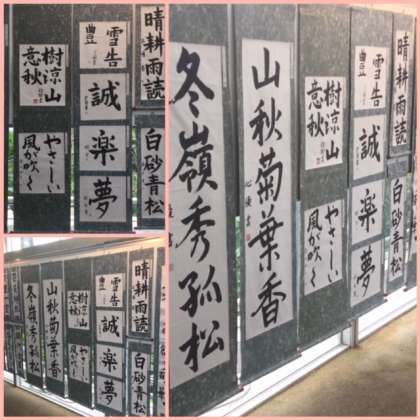 晴耕雨読
白砂青松
雪告
豊
誠
楽
夢
樹涼山
意秋
やさしい
風が吹く
晴耕雨読
白砂青松
雪告
豊
誠
楽
夢
樹涼山
意秋
やさしい
風が吹く
山秋菊葉香
冬嶺秀孤松
晴耕雨読
白砂青松
雪告
豊
誠
楽
夢
樹涼山
意秋
やさしい
風が吹く
山秋菊葉香
冬嶺秀孤松